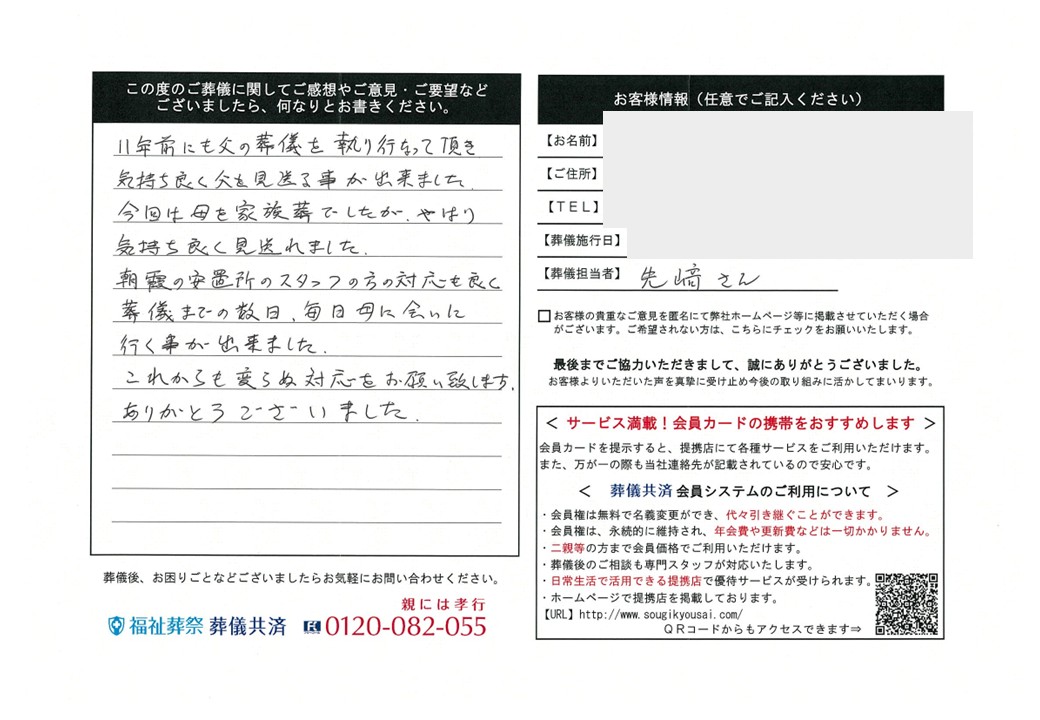 この度のご葬儀に関してご感想やご意見・ご要望など
ございましたら、何なりとお書きください。
11年前にも父の葬儀を執り行なって頂き
気持ち良く父を見送る事が出来ました。
今回は母を家族葬でしたが、やはり
気持ち良く見送れました。
朝霞の安置所のスタッフの方の対応も良く
葬儀までの数日、毎日母に会いに
行く事が出来ました。
これからも変らぬ対応をお願い致します。
ありがとうございました。
葬儀後、お困りごとなどございましたらお気軽にお問い合わせください。
親には孝行
福祉葬祭 葬儀共済 0120-082-055
お客様情報（任意でご記入ください）
【お名前】
【ご住所】
【ＴＥＬ】
【葬儀施行日】
【葬儀担当者】 先﨑さん
□お客様の貴重なご意見を匿名にて弊社ホームページ等に掲載させていただく場合
がございます。ご希望されない方は、こちらにチェックをお願いいたします。
最後までご協力いただきまして、誠にありがとうございました。
お客様よりいただいた声を真摯に受け止め今後の取り組みに活かしてまいります。
＜ サービス満載！会員カードの携帯をおすすめします ＞
会員カードを提示すると、提携店にて各種サービスをご利用いただけます。
また、万が一の際も当社連絡先が記載されているので安心です。
＜ 葬儀共済 会員システムのご利用について ＞
・会員権は無料で名義変更ができ、代々引き継ぐことができます。
・会員権は、永続的に維持され、年会費や更新費などは一切かかりません。
・二親等の方まで会員価格でご利用いただけます。
・葬儀後のご相談も専門スタッフが対応いたします。
・日常生活で活用できる提携店で優待サービスが受けられます。
・ホームページで提携店を掲載しております。
【URL】http://www.sougikyousai.com/
ＱＲコードからもアクセスできます⇒